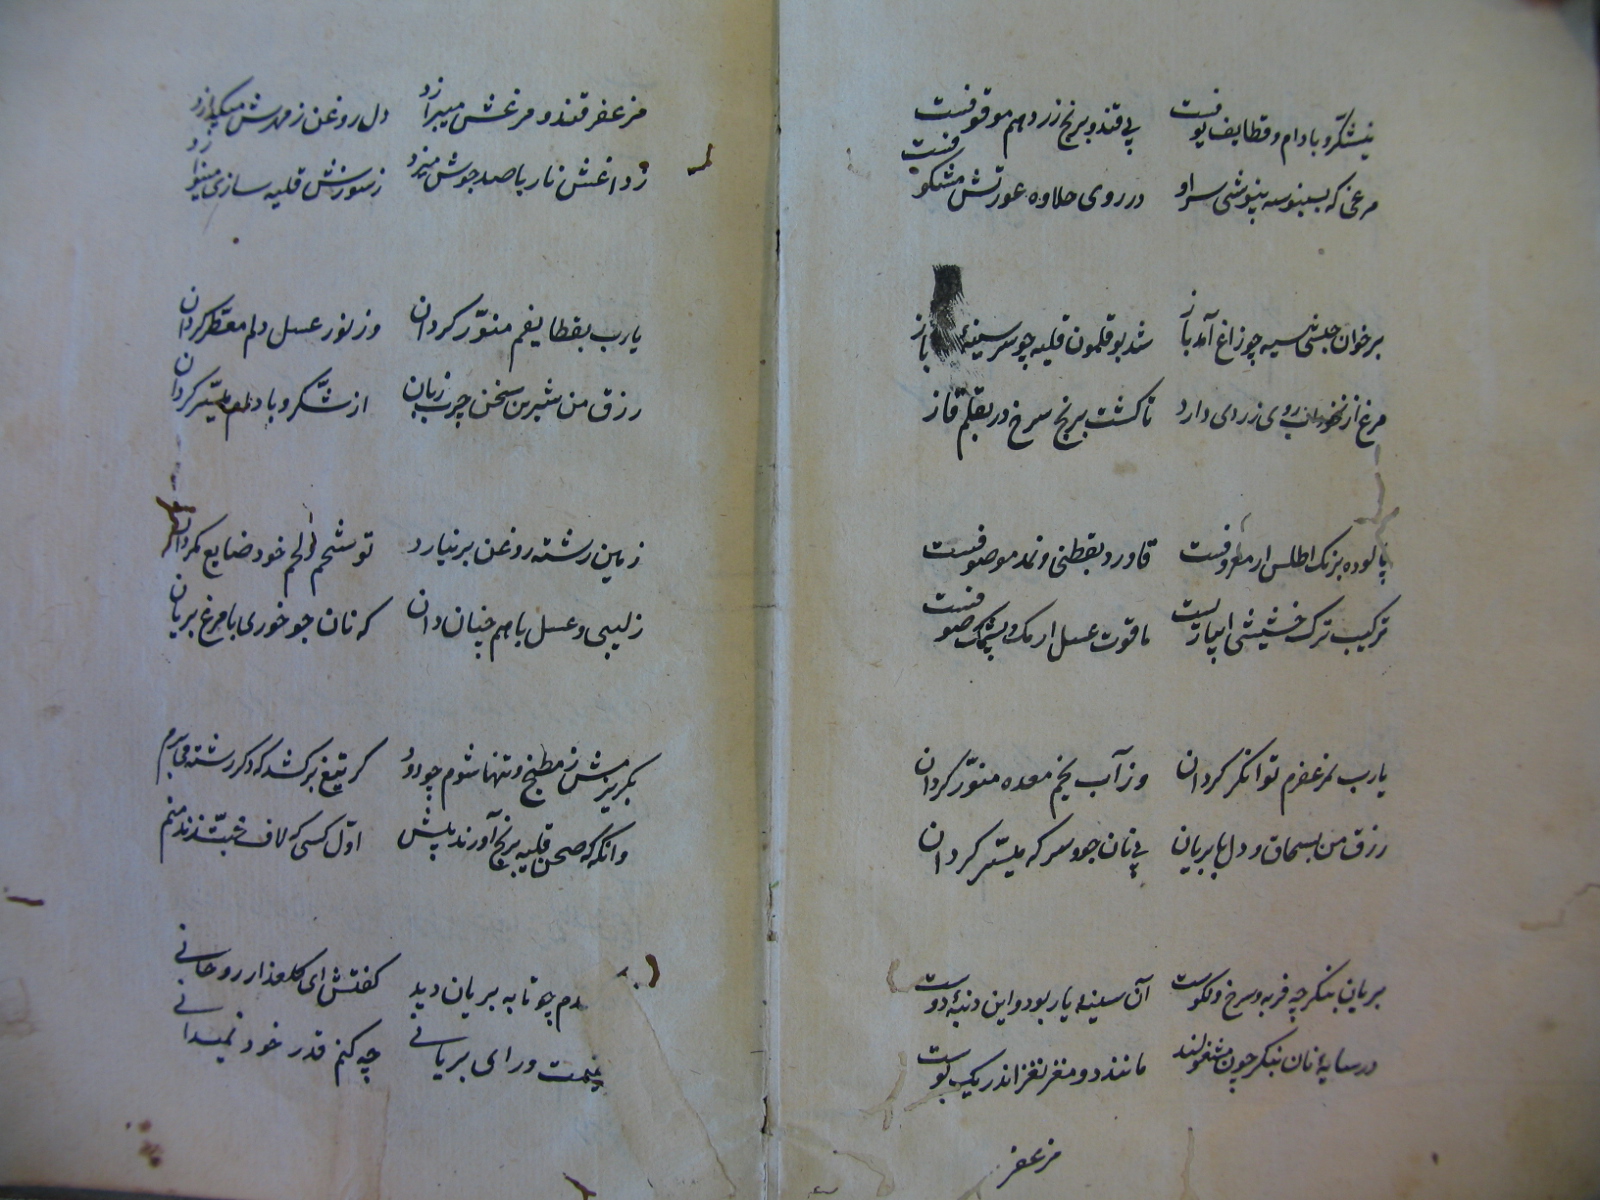 بیشکر و بادام و قطایف پوفست
بی قند و برنج زرد هم موقوفست
مرغی که بسنبوسه بپوشی سر او
در روی حلاوه عورتش مشکوفست
بر خوان حبشی سیه چو زاغ آمد باز
شد بوقلمون قلیه چو سر سینهٔ باز
مرغ از نخودآب روی زردی دارد
تا کشت برنج سرخ در بقلم قاز
پالوده برنک اطلس ار معروفست
قاورد بقطنی و نمد موصوفست
ترکیب ترک خشیشی
ماقوت عسل ارمک و پشمک صوفست
یارب بمزعفرم توانکر کردان
وز آب یخم معده منور کردان
رزق من بسحاق و دل پا بریان
بی نان جو و سرکه میسر کردان
بریان بنکر چه فربه و سرخ و نکوست
آن سینهٔ یار بود و این دنبهٔ دوست
در سایهٔ نان بنکر چون مشغولند
مانند دو مغز نغز اندر یک پوست
مزعفر
مزعفر قند و مرغش میبرازد
دل روغن ز مهرش میکدازد
ز داغش نار با صد جوش میزد
ز سوزش قلیه سازی مینوازد
یارب بقطایفم منور کردان
وز نور عسل دلم معطر کردان
رزق من شیرین سخن چرب زبان
از شکر و بادام میسر کردان
زمین رشته روغن بر نیارد
تو شحم و لحم خود ضایع مکردان
زلیبی و عسل با هم چنان دان
که نان جو خوری با مرغ بریان
بکریزمش ز مطبخ و تنها شوم چو دود
کر تیغ برکشد که دکر رشته می‌برم
وانکه که صحن قلیه برنج آورند پیش
اول کسی که لاف محبت زند منم
دم چو تابه بریان دید
کفتش ای کلعذار روحانی
ورای بریانی
چه کنم قدر خود نمیدانی